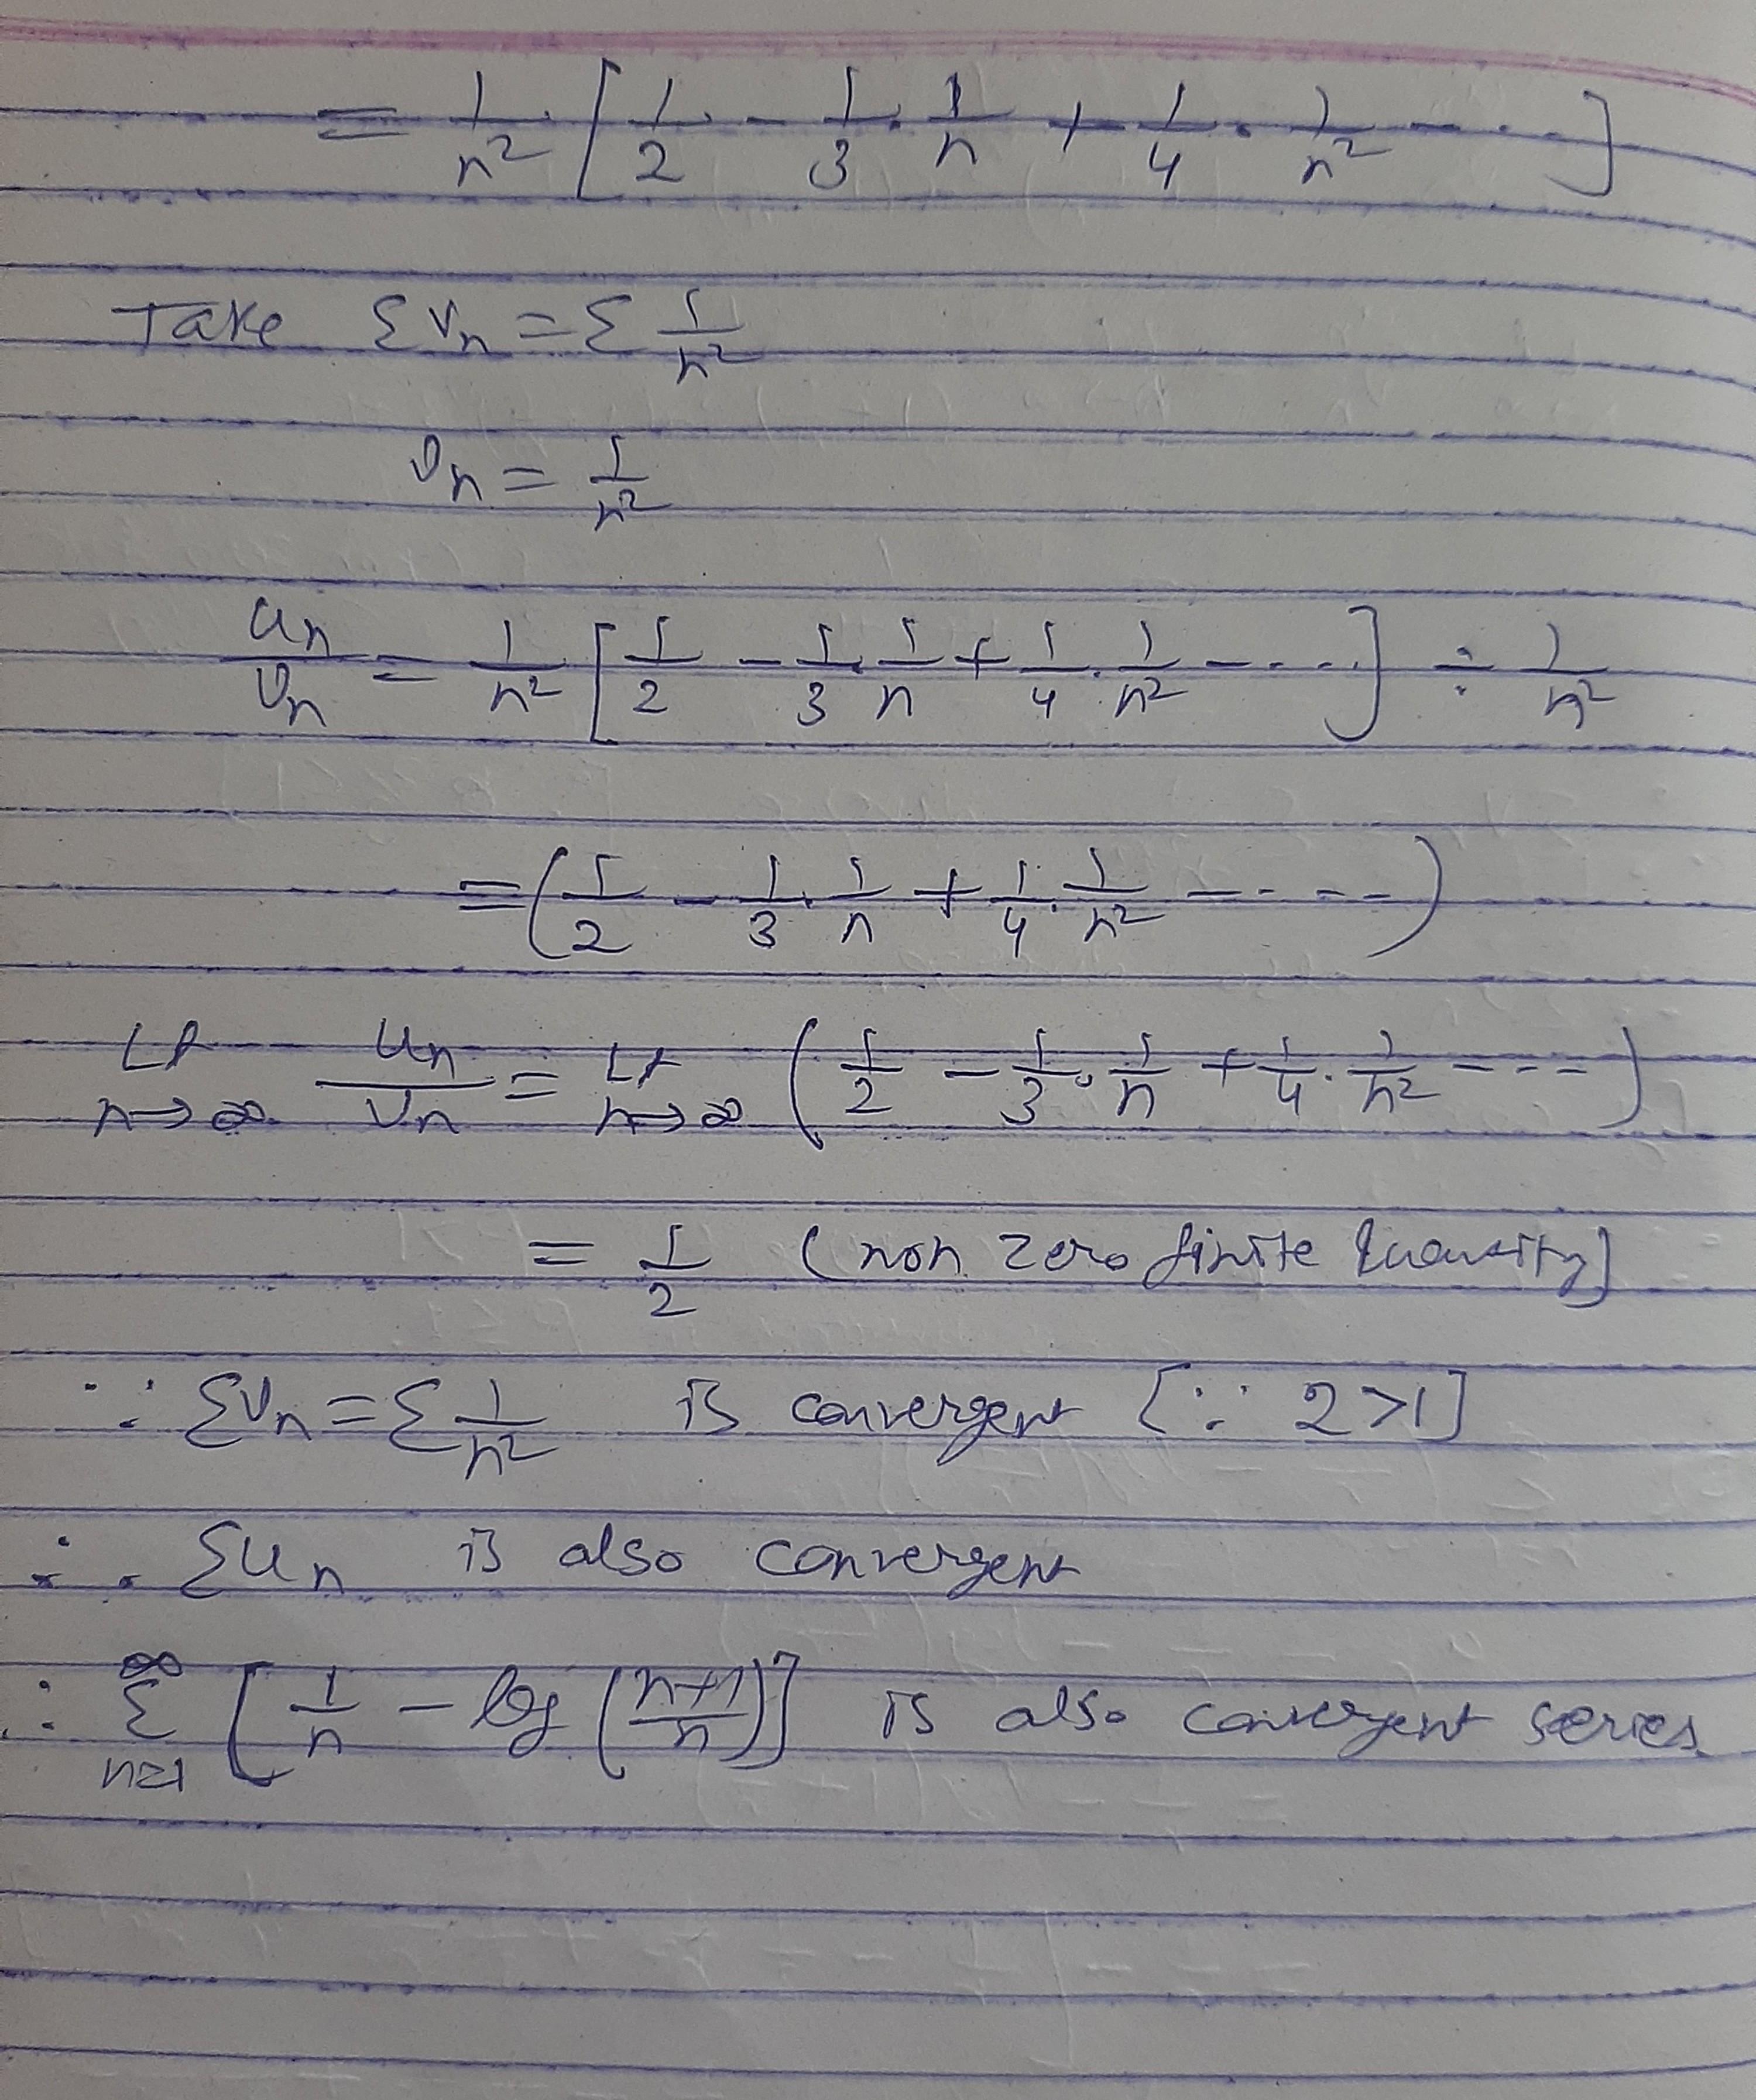 = 1/n² [ 1/2 - 1/3 . 1/n + 1/4 . 1/n² - ... ]
Take Σ Vn = Σ 1/n²
vn = 1/n²
un/vn = 1/n² [ 1/2 - 1/3 . 1/n + 1/4 . 1/n² - .... ] ÷ 1/n²
= ( 1/2 - 1/3 . 1/n + 1/4 . 1/n² - .... )
Lt n→∞ un/vn = Lt n→∞ ( 1/2 - 1/3 . 1/n + 1/4 . 1/n² - --- )
= 1/2 (non zero finite quantity)
∵ Σvn = Σ 1/n² is convergent [∵ 2>1]
∴ Σun is also convergent
∴ ∞ Σ n=1 [ 1/n - log ( n+1/n ) ] is also convergent series.